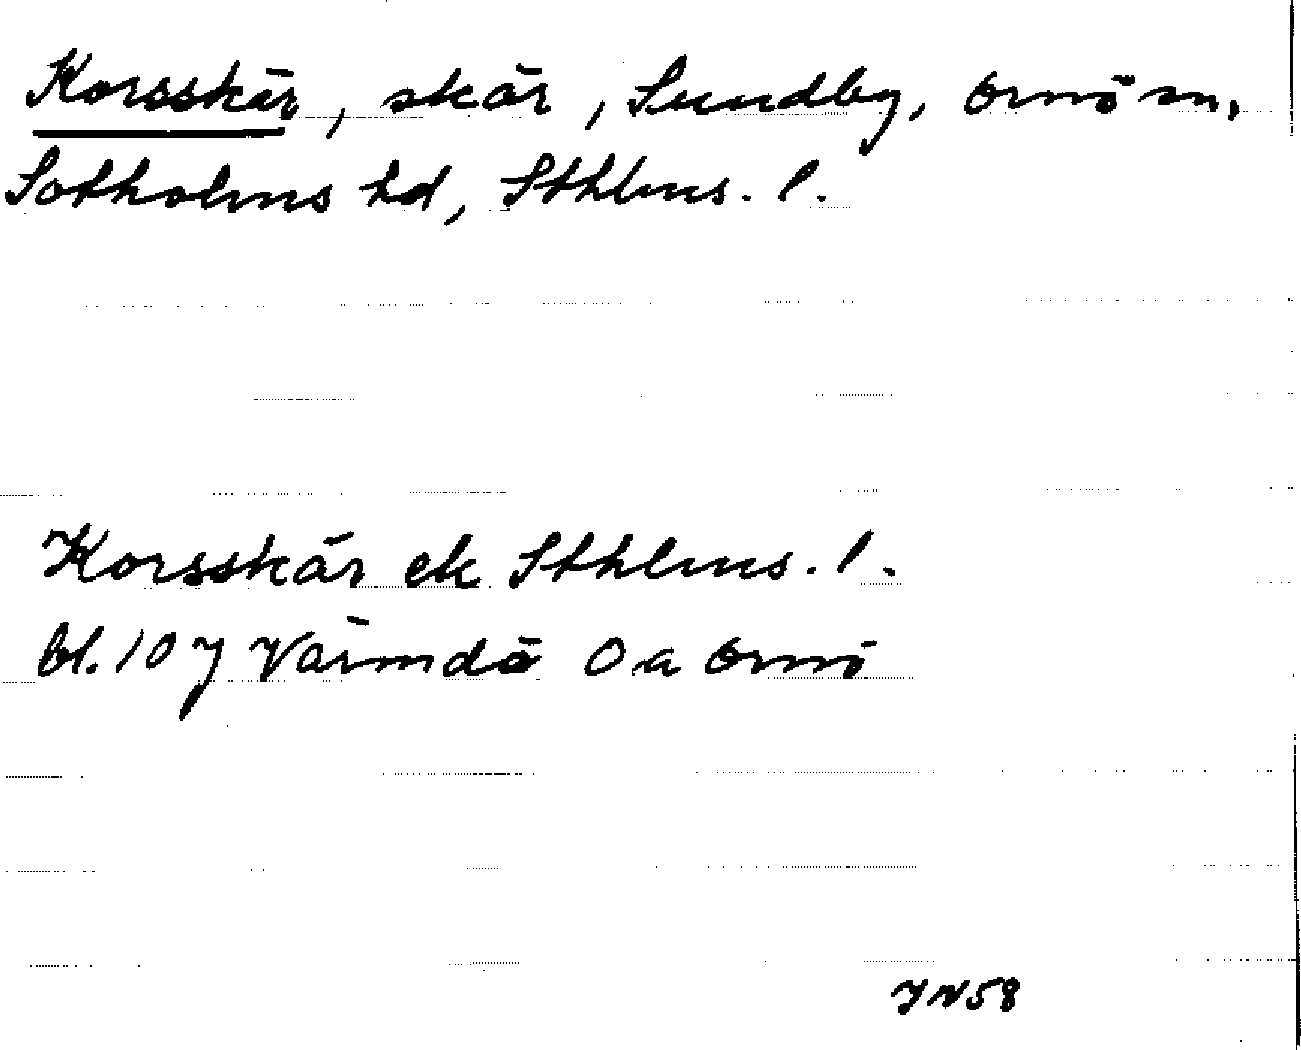 Korsskär, skär, Sundby, Ornö sn,
Sotholms hd, Sthlms. l.
Korsskär ek Sthlms. l.
bl. 10 J Värmdö O a Ornö
JN58